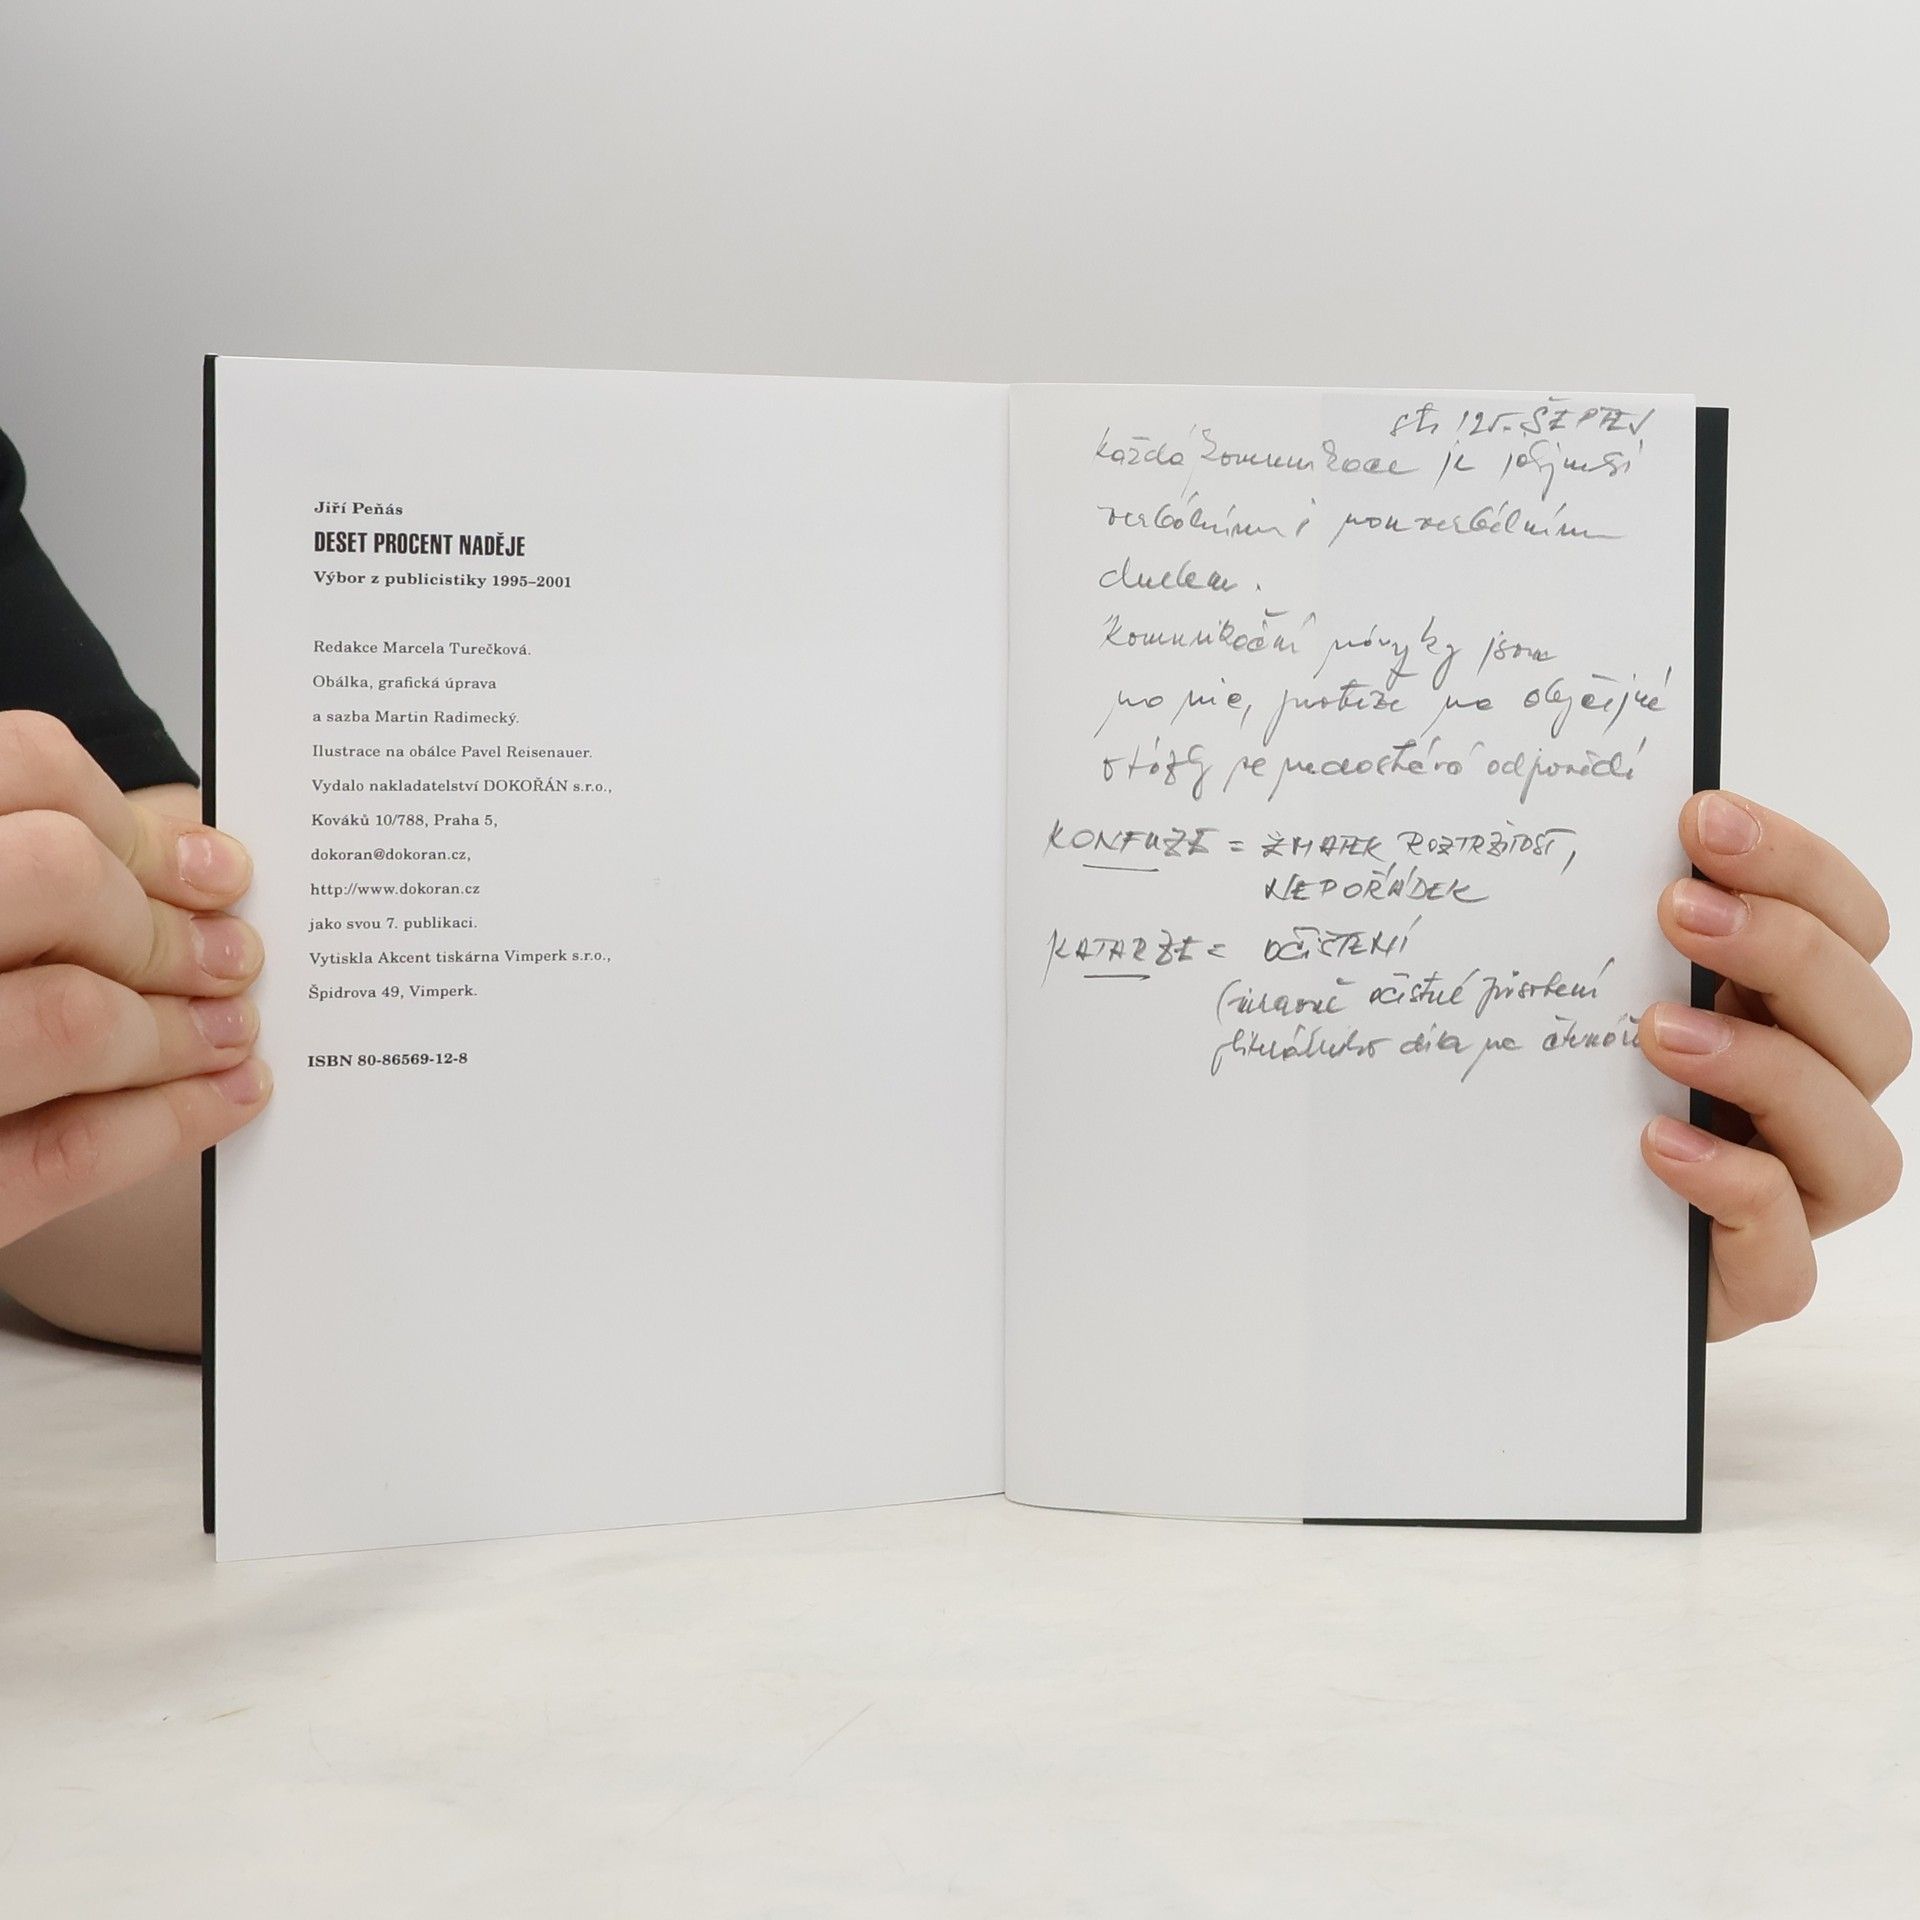 Jiří Peňás
DESET PROCENT NADĚJE
Výbor z publicistiky 1995–2001
Redakce Marcela Turečková.
Obálka, grafická úprava
a sazba Martin Radimecký.
Ilustrace na obálce Pavel Reisenauer.
Vydalo nakladatelství DOKOŘÁN s.r.o.,
Kováků 10/788, Praha 5,
dokoran@dokoran.cz,
http://www.dokoran.cz
jako svou 7. publikaci.
Vytiskla Akcent tiskárna Vimperk s.r.o.,
Špidrova 49, Vimperk.
ISBN 80-86569-12-8
str 125.
Každá komunikace je
verbálním i nonverbálním
duelem.
Komunikační návyky jsou
na nic, protože na obyčejné
otázky se nedostává odpovědí
KONFUZE = ZMATEK, ROZTRŽITOST,
NEPOŘÁDEK
KATARZE = OČIŠTENÍ
(mravně očistné působení
literárního díla na